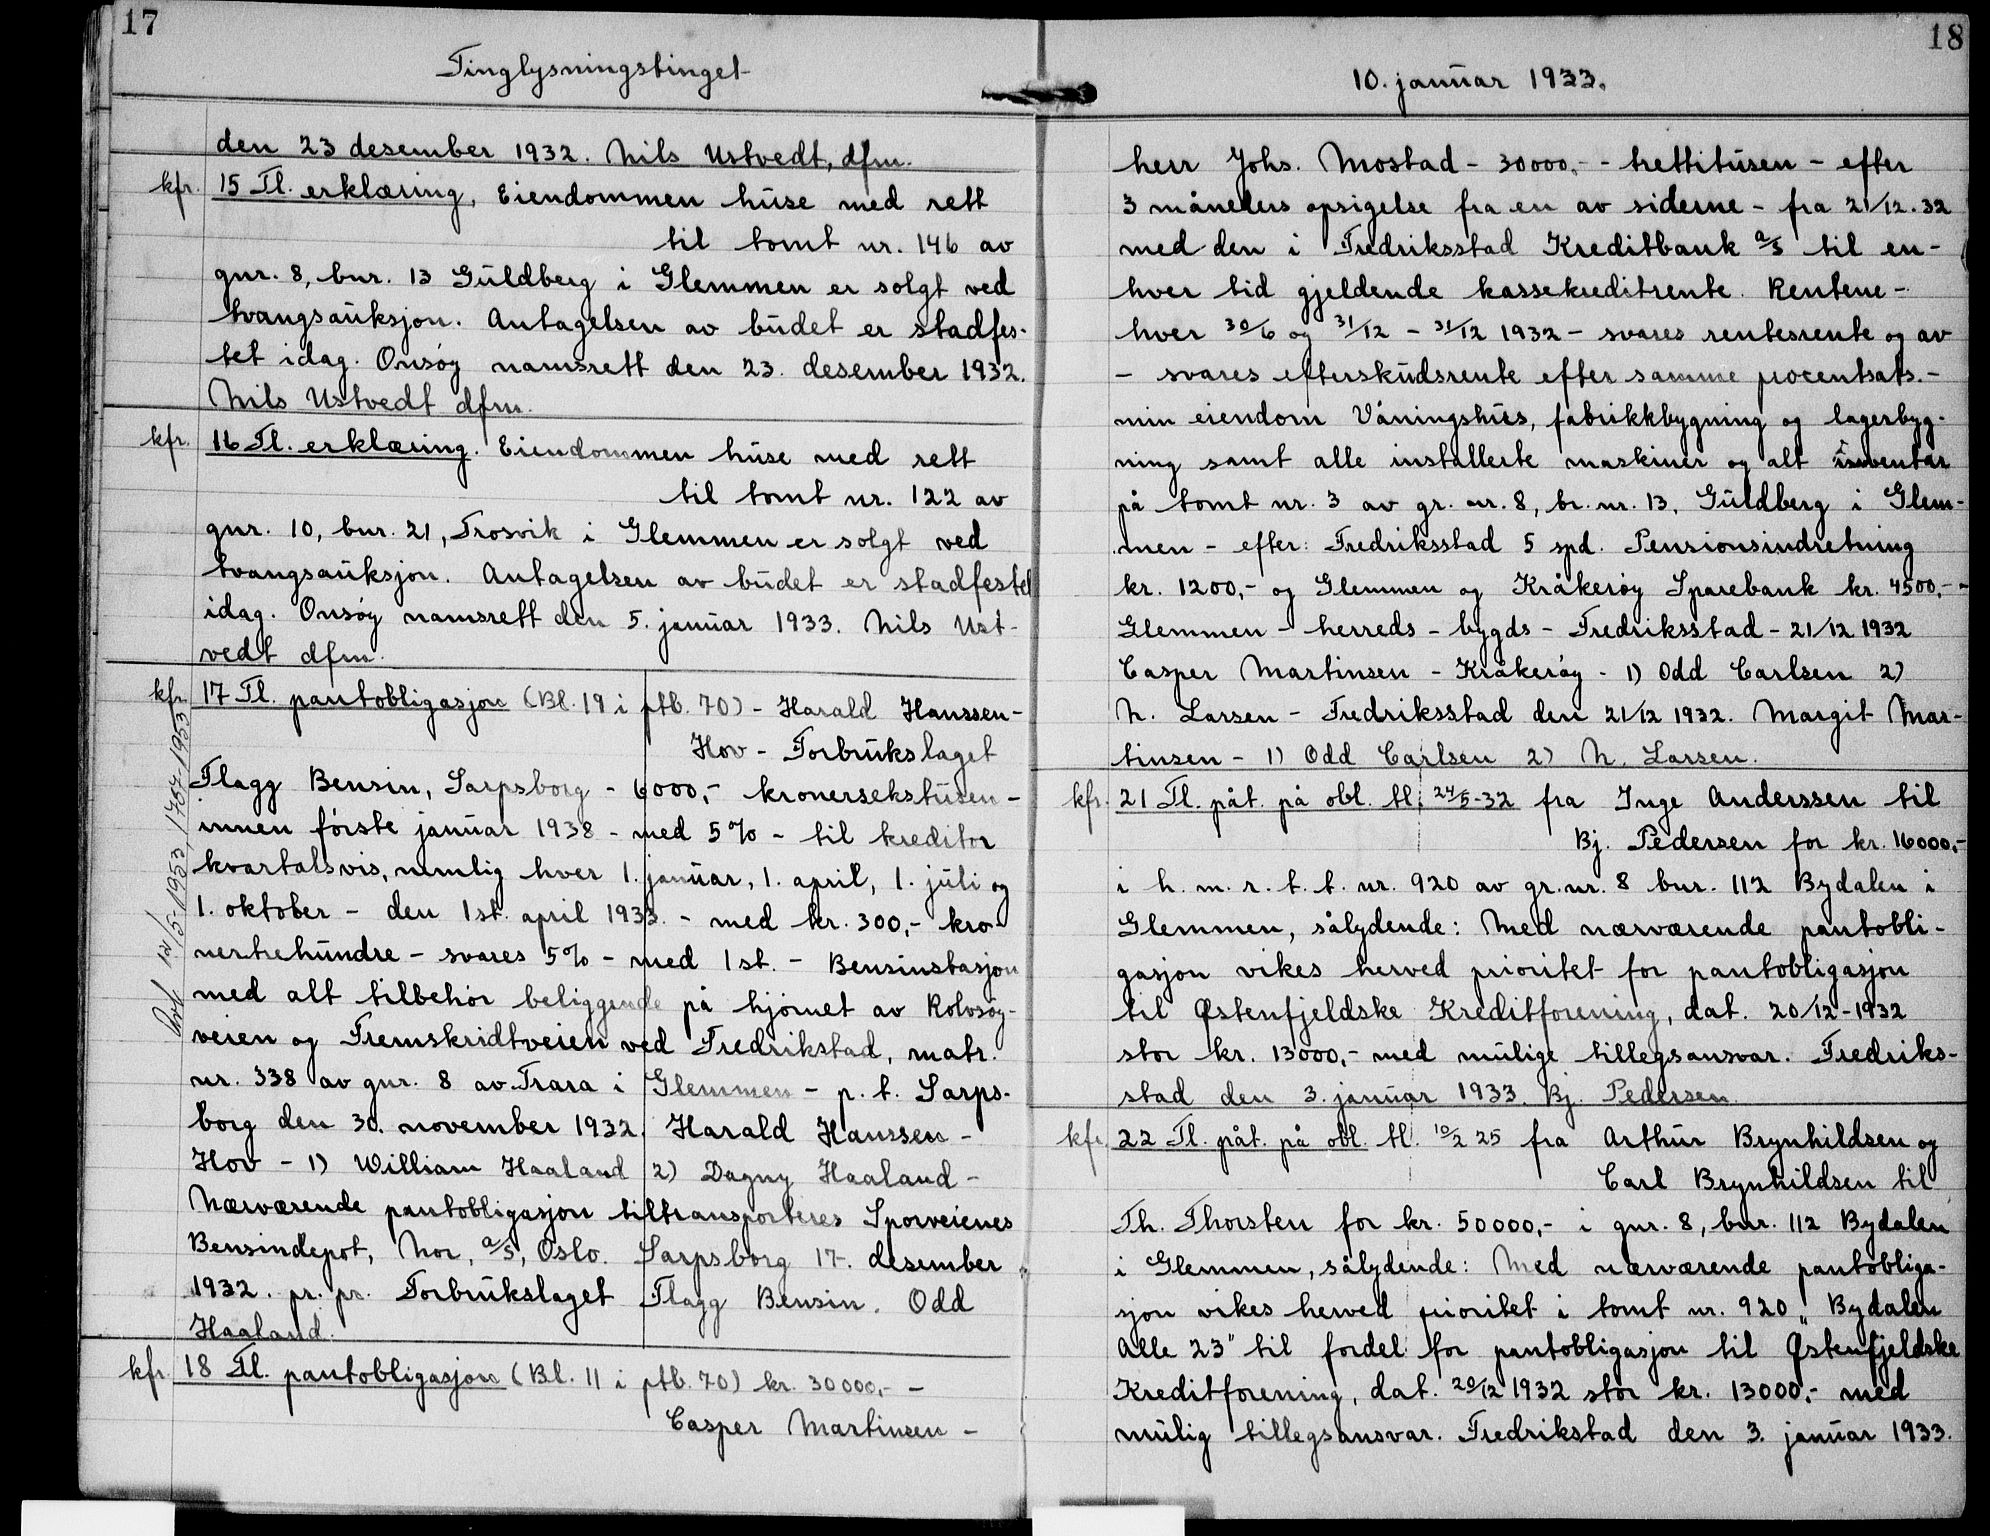 17
Tinglysningstinget
den 23 desember 1932. Nils Ustvedt, dfm.
kfr. 15 Tl. erklæring, Eiendommen huse med rett
til tomt nr. 146 av
gnr. 8, bnr. 13 Guldberg i Glemmen er solgt ved
tvangsauksjon. Antagelsen av budet er stadfes-
tet idag. Onsøy namsrett den 23. desember 1932.
Nils Ustvedt dfm.
kfr. 16 Tl. erklæring. Eiendommen huse med rett
til tomt nr. 122 av
gnr. 10, bnr. 21, Trosvik i Glemmen er solgt ved
tvangsauksjon. Antagelsen av budet er stadfestet
idag. Onsøy namsrett den 5. januar 1933. Nils Ust-
vedt dfm.
kfr. 17 Tl. pantobligasjon (Bl. 19 i ptb. 70) - Harald Hanssen-
Hov - Forbrukslaget
Flagg Bensin, Sarpsborg - 6000,- kronersekstusen -
innen første januar 1938 - med 5% - til kreditor
kvartalsvis, nemlig hver 1. januar, 1. april, 1. juli og
1. oktober - den 1st. april 1933. - med kr. 300,- kro-
nertrehundre - svares 5% - med 1st. - Bensinstasjon
med alt tilbehør beliggende på hjørnet av Rolvsøy-
veien og Fremskridtveien ved Fredrikstad, matr.
nr. 338 av gnr. 8 av Trara i Glemmen - p. t. Sarps-
borg den 30. november 1932. Harald Hanssen -
Hov - 1) William Haaland 2) Dagny Haaland -
Nærværende pantobligasjon tiltransporteres Sporveienes
Bensindepot, Nor, a/s, Oslo. Sarpsborg 17. desember
1932. pr. pr. Forbrukslaget Flagg Bensin. Odd
Haaland.
12/5-1953, 1707-1953
kfr. 18 Tl. pantobligasjon (Bl. 11 i ptb. 70) kr. 30000,- -
Casper Martinsen -
18
10. januar 1933.
herr Johs. Mostad - 30000,- - trettitusen - efter
3 måneders opsigelse fra en av siderne - fra 21/12.32
med den i Fredriksstad Kreditbank a/s til en-
hver tid gjeldende kassekreditrente. Rentene -
hver 30/6 og 31/12 - 31/12 1932 - svares rentesrente og av
- svares efterskudsrente efter samme procentsats. -
min eiendom Våningshus, fabrikkbygning og lagerbyg-
ning samt alle installerte maskiner og alt inventar
på tomt nr. 3 av gr. nr. 8, br. nr. 13, Guldberg i Glem-
men - efter: Fredriksstad 5 spd. Pensionsindretning
kr. 1200,- og Glemmen og Kråkerøy Sparebank kr. 4500,- -
Glemmen - herreds - bygds - Fredriksstad - 21/12 1932
Casper Martinsen - Kråkerøy - 1) Odd Carlsen 2)
N. Larsen - Fredriksstad den 21/12 1932. Margit Mar-
tinsen - 1) Odd Carlsen 2) N. Larsen.
kfr. 21 Tl. påt. på obl. tl. 24/5-32 fra Inge Anderssen til
Bj. Pedersen for kr. 16000,-
i h. m. r. t. t. nr. 920 av gr. nr. 8 bnr. 112 Bydalen i
Glemmen, sålydende: Med nærværende pantobli-
gasjon vikes herved prioritet for pantobligasjon
til Østenfjeldske Kreditforening, dat. 20/12-1932
stor kr. 13000,- med mulige tillegsansvar. Fredriks-
stad den 3. januar 1933. Bj. Pedersen.
kfr. 22 Tl. påt. på obl. tl. 10/2 25 fra Arthur Brynhildsen og
Carl Brynhildsen til
Th. Thorsten for kr. 50000,- i gnr. 8, bnr. 112 Bydalen
i Glemmen, sålydende: Med nærværende pantobliga-
sjon vikes herved prioritet i tomt nr. 920 „Bydalen
Alle 23" til fordel for pantobligasjon til Østenfjeldske
Kreditforening, dat. 20/12 1932 stor kr. 13000,- med
mulig tillegsansvar. Fredrikstad den 3. januar 1933.